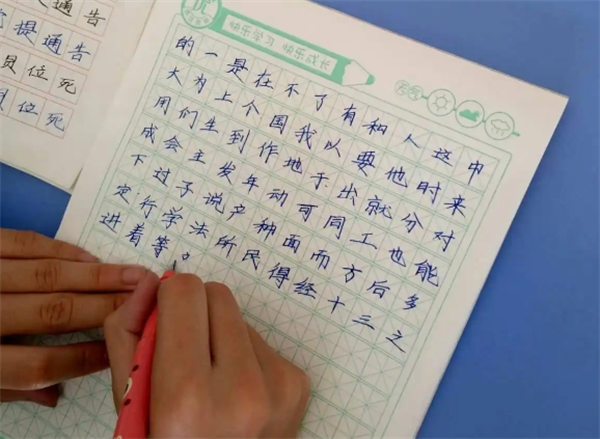 通告
提通告
位死
位死
快乐学习 快乐成长
天气
的一是在不了有和人这中
大为上个国我以要他时来
用们生到作地于出就分对
成会主发年动可同工也能
下过子说产种面而方后多
定行学法所民得经十三之
进着等。